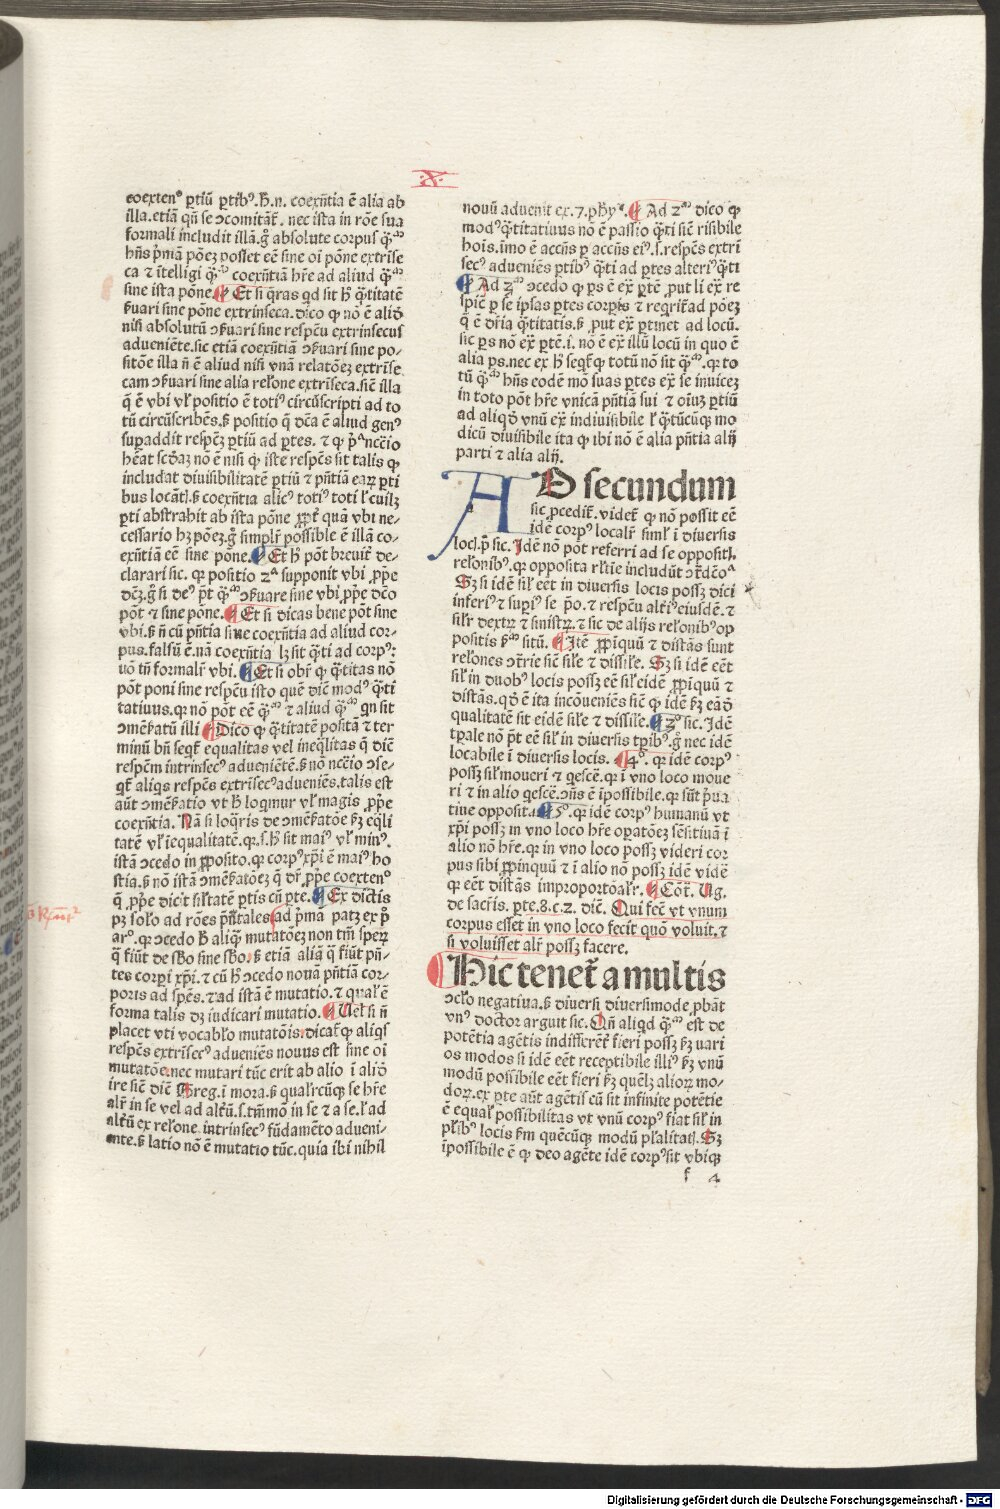 .X.
coextenꝰ ꝑtiũ ꝑtibꝰ. h̃. n. coexñtia ẽ alia ab
illa. etiã qñ se ↄcomitãt̃. nec ista in rõe sua
formali includit illã. g̊ absolute corpus q̃ᵐ
hñs p̃mã põeꝫ posset eẽ sine oi põne extrĩse
ca ⁊ ĩtelligi q̃ᵐ coexñtia hr̃e ad aliud q̃ᵐ
sine ista põne. Et si q̃ras qd sit h̊ q̃titatẽ
ↄ̃uari sine põne extrinseca. dico ꝙ nõ ẽ aliõ
nisi absolutũ ↄ̃uari sine respc̃u extrinsecus
adueniẽte. sic etiã coexñtiã ↄ̃uari sine po-
sitõe illa ñ ẽ aliud nisi vnã relatõeꝫ extrĩse
cam ↄ̃uari sine alia rel̃one extrĩseca. siẽ illa
q̃ ẽ vbi vl̃ positio ẽ totiꝰ circũscripti ad to
tũ circũscribẽs. ß positio q̃ dc̃a ẽ aliud genꝰ
suꝑaddit respc̃ꝫ ꝑtiũ ad ꝑtes. ⁊ ꝙ p̃ᵃ nccĩo
hẽat sc̃ðaꝫ nõ ẽ nisi ꝙ iste respc̃s sit talis ꝙ
includat diuisibilitatẽ ꝑtiũ ⁊ pñtiã eaꝝ ꝑti
bus locãtꝭ. ß coexñtia alicꝰ totiꝰ toti l̃ cuilꝫ
ꝑti abstrahit ab ista põne ꝓpt̃ quã vbi ne-
cessario hꝫ põeꝫ. g̊ simplr̃ possibile ẽ illã co-
exñtiã eẽ sine põne. Et h̊ põt breuit̃ de-
clarari sic. qꝛ positio 2ᵃ supponit vbi ꝓpe
dc̃ꝫ. g̊ si deꝰ p̃t q̃ᵐ ↄ̃uare sine vbi ꝓpe dc̃o
põt ⁊ sine põne. Et si dicas bene põt sine
vbi. ß ñ cũ pñtia siue coexñtia ad aliud cor-
pus. falsũ ẽ. nã coexñtia lꝫ sit q̃ti ad corpꝰ:
uõ tñ formalr̃ vbi. Et si obr̃ ꝙ q̃titas nõ
põt poni sine respc̃u isto quẽ dic̃ modꝰ q̃ti
tatiuus. qꝛ nõ põt eẽ q̃ᵐ ⁊ aliud q̃ᵐ qn sit
ↄmẽs̃atũ illi Dico ꝙ q̃titatẽ positã ⁊ ter
minũ bñ seqt̃ equalitas vel ineq̃litas q̃ dic̃
respc̃m intrinsecꝰ adueniẽtẽ. ß nõ nccĩo ↄse-
qt̃ aliqs respc̃s extrĩsecꝰ adueniẽs. talis est
aũt ↄmẽs̃atio vt h̊ loqmur vl̃ magis ꝓpe
coexñtia. Nã si loq̃ris de ↄmẽs̃atõe ẜm eq̃li
tatẽ vl̃ ĩequalitatẽ. qꝛ. s. h̊ sit maiꝰ vl̃ minꝰ.
istã ↄcedo in ꝓposito. qꝛ corpꝰ xp̃i ẽ maiꝰ ho
stia. ß nõ istã ↄmẽs̃atõeꝫ q̃ dr̃ ꝓpe coextenꝰ
q̃ ꝓpe dicit sil̃tatẽ ꝑtis cũ ꝑte. Ex dictis
pꝫ sol̃o ad rões pñr̃tales ad p̃ma patꝫ ex p̊
ar⁰. qꝛ ↄcedo h̊ aliq̃ mutatõeꝫ non tm̃ speꝝ
q̃ fiũt de sb̃o sine sb̃o. ß etiã aliã q̃ fiũt pñ-
tes corpi xp̃i. ⁊ cũ h̊ ↄcedo nouã pñtiã cor-
poris ad spẽs. ⁊ ad istã ẽ mutatio. ⁊ qual̃ ẽ
forma talis dꝫ iudicari mutatio. Uel si ñ
placet vti vocab̃lo mutatõis. dicat̃ ꝙ aliqs
respc̃s extrĩsecꝰ adueniẽs nouus est sine oi
mutatõe. nec mutari tũc erit ab alio ĩ aliõ
ire siẽ dic̃ Areg. ĩ mora. ß qualr̃cũqꝫ se hr̃e
alr̃ in se vel ad alt̃ũ. s. tm̃mõ in se ⁊ a se. l̃ ad
alt̃ũ ex rel̃one. intrinsecꝰ fũdamẽto adueni-
ente. ß latio nõ ẽ mutatio tũc. quia ibi nihil
nouũ aduenit ex. 7. ph̃yᵉ. Ad 2ᵐ dico ꝙ
modꝰ q̃titatiuus nõ ẽ passio q̃ti siẽ risibile
hois. ĩmo ẽ accñs ꝑ accñs eiꝰ. s. respc̃s extrĩ
secꝰ adueniẽs ꝑtibꝰ q̃ti ad ꝑtes alteriꝰ q̃ti
Ad 3ᵐ ↄcedo ꝙ ꝑs ẽ ex̃ ꝑtẽ ꝓut li ex̃ re
spic̃ ꝑ se ipsas ꝑtes corꝑis ⁊ reqrit̃ ad põeꝫ
q̃ ẽ dr̃ia q̃titatis. ß ꝓut ex̃ ꝑtinet ad locũ.
sic ꝑs nõ ex̃ ꝑtẽ. i. nõ ẽ ex̃ illũ locũ in quo ẽ
alia ꝑs. nec ex h̊ seqt̃ ꝙ totũ nõ sit q̃ᵐ. qꝛ to
tũ q̃ᵐ hñs eodẽ mõ suas ꝑtes ex̃ se inuiceꝫ
in toto põt hr̃e vnicã pñtiã sui ⁊ oĩuꝫ ꝑtiũ
ad aliqð vnũ ex̃ indiuisibile l̃ q̃tũcũqꝫ mo
dicũ diuisibile ita ꝙ ibi nõ ẽ alia pñtia alij
parti ⁊ alia alij.
AD secundum
sic ꝓcedit̃. videt̃ ꝙ nõ possit eẽ
idẽ corpꝰ localr̃ siml̃ ĩ diuersis
locꝭ. p̃ sic. Idẽ nõ põt referri ad se oppositꝭ.
rel̃onibꝰ. qꝛ opposita rl̃tie includũt ↄ̃dc̃oᵃ
Sꝫ si idẽ sil̃ eẽt in diuersis locis possꝫ dici
inferiꝰ ⁊ supiꝰ se ip̃o. ⁊ respc̃u alt̃iꝰ eiusdẽ. ⁊
sil̃r dextꝝ ⁊ sinistꝝ. ⁊ sic de alijs rel̃onibꝰ op
positis ẜm sitũ. Itẽ ꝓpĩquũ ⁊ distãs sunt
rel̃ones ↄ̃rie siẽ sil̃e ⁊ dissil̃e. Sꝫ si idẽ eẽt
sil̃ in duobꝰ locis possꝫ eẽ sil̃ eidẽ ꝓpĩquũ ⁊
distãs. qð ẽ ita incõueniẽs siẽ ꝙ idẽ ẜm eãð
qualitatẽ sit eidẽ sil̃e ⁊ dissil̃e. 3⁰ sic. Idẽ
tꝑale nõ p̃t eẽ sil̃ in diuersis tꝑibꝰ. g̊ nec idẽ
locabile ĩ diuersis locis. 4⁰. qꝛ idẽ corpꝰ
possꝫ sil̃ moueri ⁊ qesc̃e. qꝛ ĩ vno loco moue
ri ⁊ in alio qesc̃e. ↄñs ẽ ĩpossibile. qꝛ sũt p̃ua
tiue opposita. 5⁰. qꝛ idẽ corpꝰ humanũ vt
xp̃i possꝫ in vno loco hr̃e opatõeꝫ sẽsitiuã ĩ
alio nõ hr̃e. qꝛ in vno loco possꝫ videri cor
pus sibi ꝓpinquũ ⁊ ĩ alio nõ possꝫ idẽ vidẽ
ꝙ eẽt distãs improportõalr̃. Cõt̃. Ug.
de sacr̃is. ꝑte. 8. c. 2. dic̃. Qui fec̃ vt vnum
corpus esset in vno loco fecit quõ voluit. ⁊
si voluisset alr̃ possꝫ facere.
Hic tenet̃ a multis
ↄcl̃o negatiua. ß diuersi diuersimode ꝓbãt
vnꝰ doctor arguit sic. Qñ aliqd q̃ᵐ est de
potẽtia agẽtis indifferẽt̃ fieri possꝫ ẜm uari
os modos si idẽ eẽt receptibile illiꝰ ẜm vnũ
modũ possibile eẽt fieri ẜm quẽlꝫ alioꝝ mo-
doꝝ. ex ꝑte aũt agẽtis cũ sit infinite potẽtie
ẽ equal̃ possibilitas vt vnũ corpꝰ fiat sil̃ in
pl̃ibꝰ locis ẜm quẽcũqꝫ modũ pl̃alitatꝭ. Sꝫ
ĩpossibile ẽ ꝙ deo agẽte idẽ corpꝰ sit vbiqꝫ
f 4
Digitalisierung gefördert durch die Deutsche Forschungsgemeinschaft - DFG